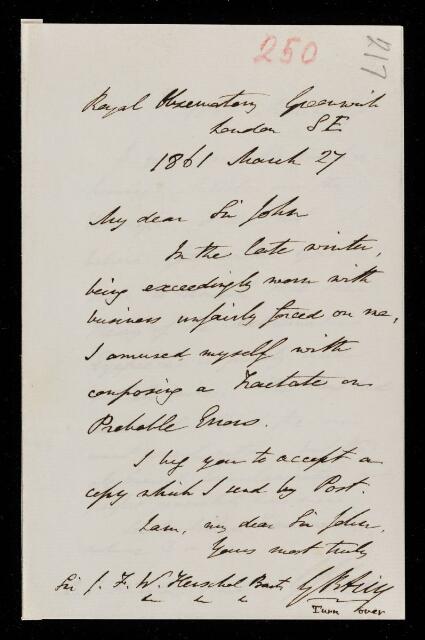 250
217
Royal Observatory Greenwich
London S E
1861 March 27
My dear Sir John
In the late winter,
being exceedingly worn with
business unfairly forced on me,
I amused myself with
composing a Tractate on
Probable Errors.
I beg you to accept a
copy which I send by Post.
I am, my dear Sir John,
Yours most truly
G B Airy
Sir J. F. W. Herschel Bart
Turn over